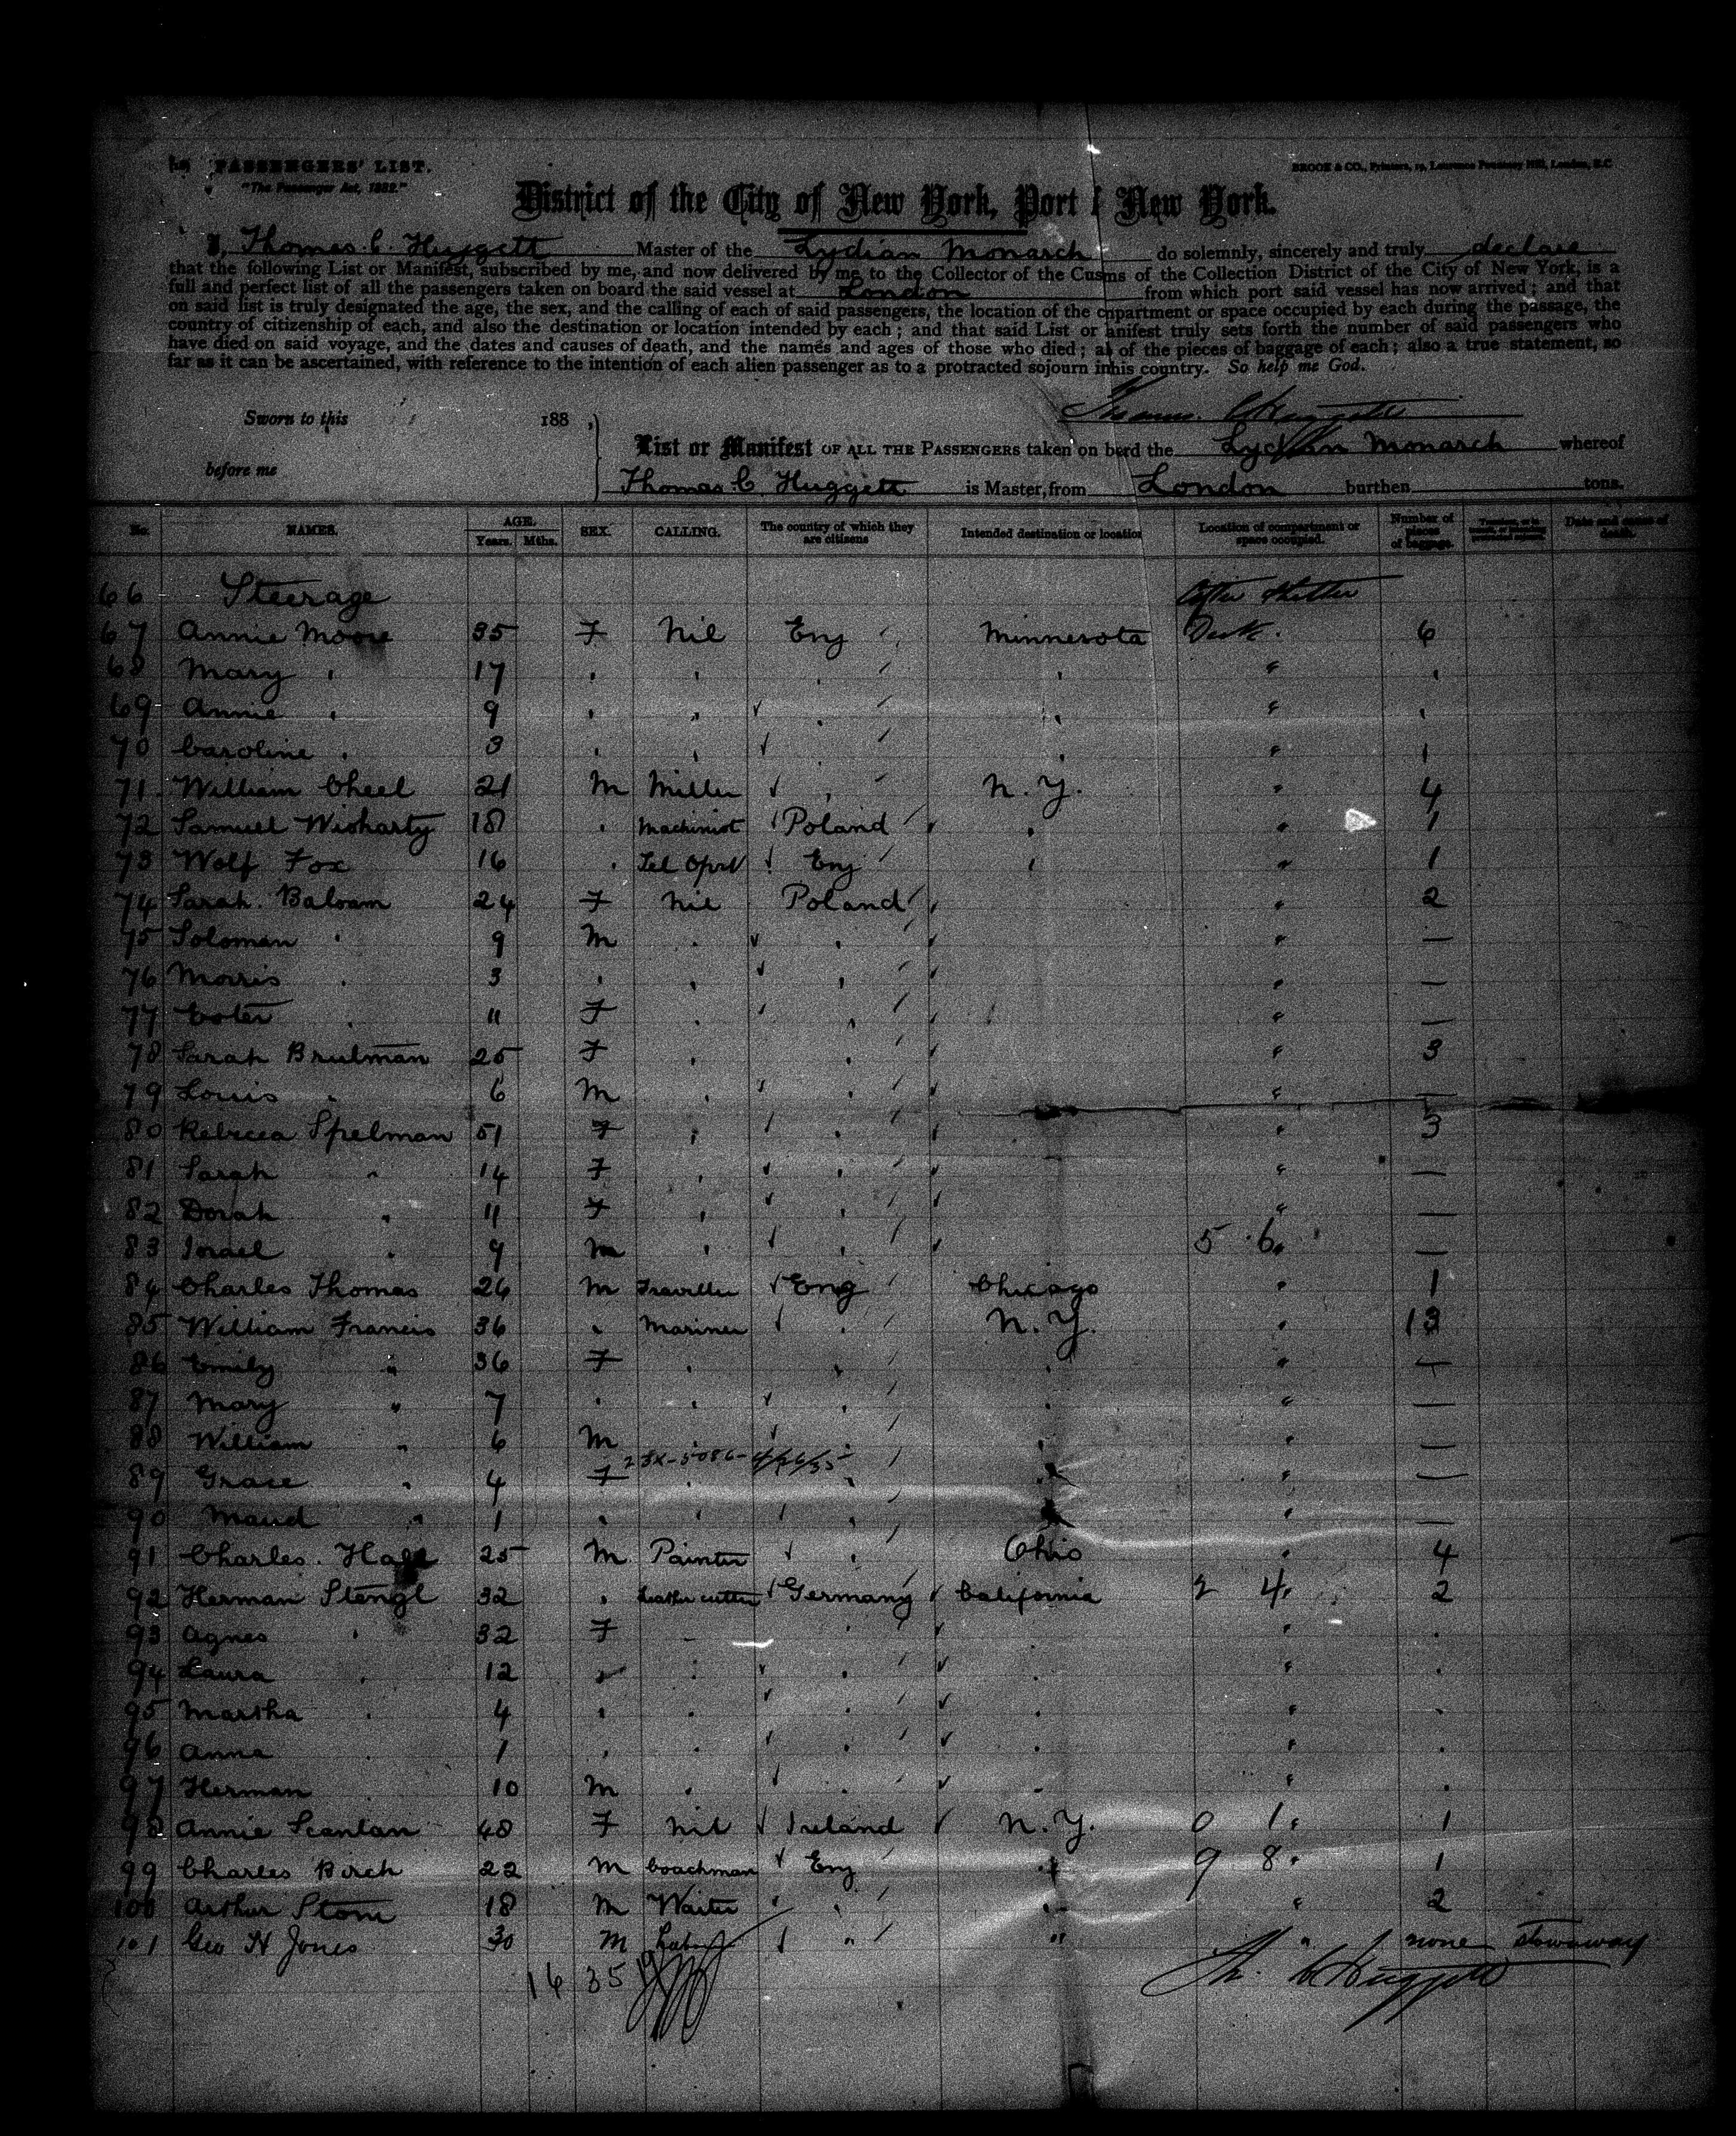 PASSENGERS' LIST.
"The Passenger Act, 1882."
BROOK & CO., Printers, 19, Laurence Pountney Hill, London, E.C.
District of the City of New York, Port New York.
I, Thomas C. Huggett Master of the Lydian Monarch do solemnly, sincerely and truly declare
that the following List or Manifest, subscribed by me, and now delivered by me to the Collector of the Cusms of the Collection District of the City of New York, is a
full and perfect list of all the passengers taken on board the said vessel at London from which port said vessel has now arrived; and that
on said list is truly designated the age, the sex, and the calling of each of said passengers, the location of the cnpartment or space occupied by each during the passage, the
country of citizenship of each, and also the destination or location intended by each; and that said List or anifest truly sets forth the number of said passengers who
have died on said voyage, and the dates and causes of death, and the names and ages of those who died; al of the pieces of baggage of each; also a true statement, so
far as it can be ascertained, with reference to the intention of each alien passenger as to a protracted sojourn inhis country. So help me God.
Sworn to this 188
before me
List or Manifest OF ALL THE PASSENGERS taken on berd the Lydian Monarch whereof
Thomas C. Huggett is Master, from London burthen tons.
No. NAMES. AGE. Years. Mths. SEX. CALLING. The country of which they are citizens Intended destination or location Location of compartment or space occupied. Number of pieces of baggage. Date and cause of death.
66 Steerage After Shelter
67 Annie Moore 35 F Nil Eng Minnesota Deck. 6
68 Mary " 17 " " " " " "
69 Annie " 9 " " " " " "
70 Caroline " 3 " " " " " 1
71 William Cheel 21 M Miller " N.Y. " 4
72 Samuel Wisharty 18 " Machinist Poland " " 1
73 Wolf Fox 16 " Tel Oprt Eng " " 1
74 Sarah Balsam 24 F Nil Poland " 2
75 Soloman " 9 M " " " —
76 Morris " 3 " " " " —
77 Ester " 11 F " " " —
78 Sarah Brulman 25 F " " " 3
79 Louis " 6 M " " " —
80 Rebecca Spelman 51 F " " 3
81 Sarah " 14 F " " " —
82 Dorah " 11 F " " " —
83 Israel " 9 M " " 5 6 " —
84 Charles Thomas 26 M Traveller Eng Chicago " 1
85 William Francis 36 " Mariner " N.Y. " 13
86 Emily " 36 F " " " " —
87 Mary " 7 " " " " " —
88 William " 6 M " " " —
89 Grace " 4 F " " " " —
90 Maud " 1 " " " " " —
91 Charles Hall 25 M Painter " Ohio " 4
92 Herman Stengl 32 " Leather cutter Germany California 2 4 " 2
93 Agnes " 32 F " " " "
94 Laura " 12 " " " " " "
95 Martha " 4 " " " " " "
96 Anna " 1 " " " " " "
97 Herman " 10 M " " " " "
98 Annie Scanlan 48 F Nil Ireland N.Y. 0 1 " 1
99 Charles Birch 22 M Coachman Eng " 9 8 " 1
100 Arthur Stom 18 M Waiter " " " 2
101 Geo H Jones 30 M " " " none Stowaway
16 35
Th. C Huggett